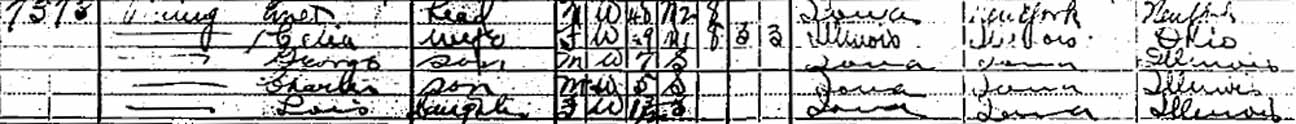 Head M W 40 M2 8 Iowa New York New York
Celia Wife F W 29 M1 8 3 3 Illinois Illinois Ohio
George Son M W 7 S Iowa Iowa Illinois
Charles Son M W 5 S Iowa Iowa Illinois
Lois Daughter F W S Iowa Iowa Illinois